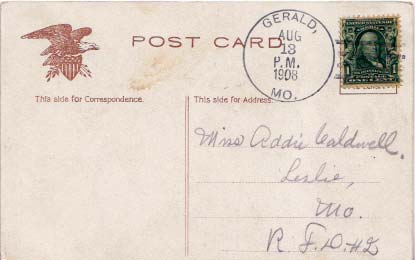 POST CARD.
GERALD,
AUG
13
P.M.
1908
MO.
This side for Correspondence.
This side for Address.
Miss Addie Caldwell.
Leslie,
Mo.
R.F.D.#2